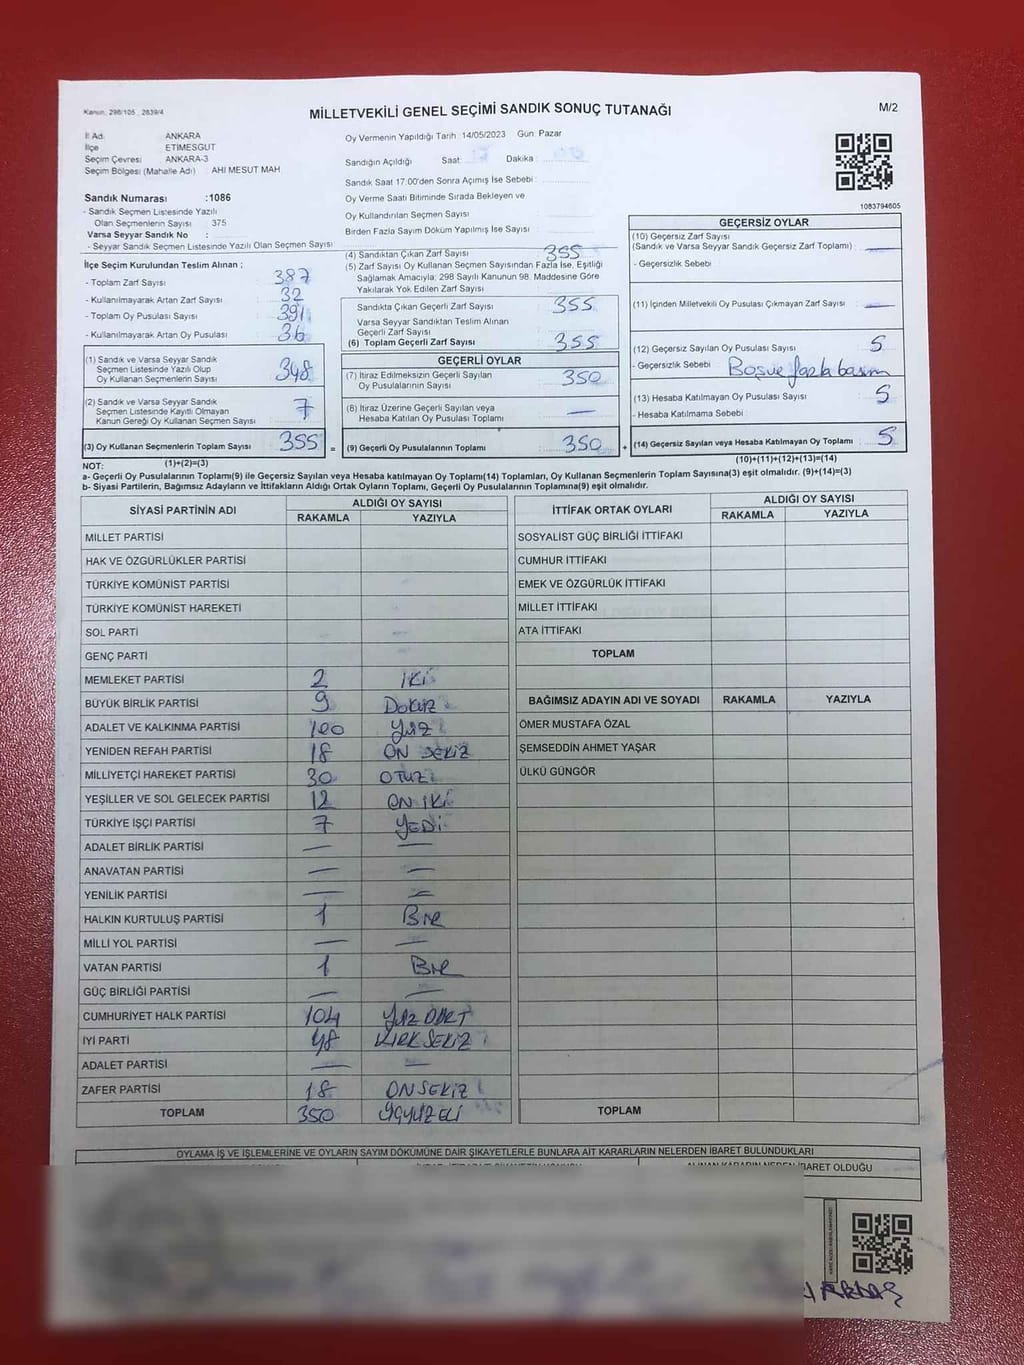 Kanun: 298/105 _ 2839/4
MİLLETVEKİLİ GENEL SEÇİMİ SANDIK SONUÇ TUTANAĞI
M/2
İl Adı ANKARA
İlçe ETİMESGUT
Seçim Çevresi : ANKARA-3
Seçim Bölgesi (Mahalle Adı) : AHI MESUT MAH
Sandık Numarası :1086
- Sandık Seçmen Listesinde Yazılı
Olan Seçmenlerin Sayısı : 375
Varsa Seyyar Sandık No :
- Seyyar Sandık Seçmen Listesinde Yazılı Olan Seçmen Sayısı :
Oy Vermenin Yapıldığı Tarih :14/05/2023 Gün: Pazar
Sandığın Açıldığı Saat: Dakika :
Sandık Saat 17:00'den Sonra Açımış İse Sebebi :
Oy Verme Saati Bitiminde Sırada Bekleyen ve
Oy Kullandırılan Seçmen Sayısı
Birden Fazla Sayım Döküm Yapılmış İse Sayısı :
1083794605
İlçe Seçim Kurulundan Teslim Alınan ;
- Toplam Zarf Sayısı : 387
- Kullanılmayarak Artan Zarf Sayısı : 32
- Toplam Oy Pusulası Sayısı : 391
- Kullanılmayarak Artan Oy Pusulası : 36
(1) Sandık ve Varsa Seyyar Sandık
Seçmen Listesinde Yazılı Olup
Oy Kullanan Seçmenlerin Sayısı : 348
(2) Sandık ve Varsa Seyyar Sandık
Seçmen Listesinde Kayıtlı Olmayan
Kanun Gereği Oy Kullanan Seçmen Sayısı : 7
(3) Oy Kullanan Seçmenlerin Toplam Sayısı : 355
(1)+(2)=(3)
(4) Sandıktan Çıkan Zarf Sayısı : 355
(5) Zarf Sayısı Oy Kullanan Seçmen Sayısından Fazla İse, Eşitliği
Sağlamak Amacıyla; 298 Sayılı Kanunun 98. Maddesine Göre
Yakılarak Yok Edilen Zarf Sayısı :
Sandıkta Çıkan Geçerli Zarf Sayısı : 355
Varsa Seyyar Sandıktan Teslim Alınan
Geçerli Zarf Sayısı :
(6) Toplam Geçerli Zarf Sayısı : 355
GEÇERLİ OYLAR
(7) İtiraz Edilmeksizin Geçerli Sayılan
Oy Pusulalarının Sayısı : 350
(8) İtiraz Üzerine Geçerli Sayılan veya
Hesaba Katılan Oy Pusulası Toplamı : —
(9) Geçerli Oy Pusulalarının Toplamı : 350
GEÇERSİZ OYLAR
(10) Geçersiz Zarf Sayısı
(Sandık ve Varsa Seyyar Sandık Geçersiz Zarf Toplamı) : —
- Geçersizlik Sebebi :
(11) İçinden Milletvekili Oy Pusulası Çıkmayan Zarf Sayısı : —
(12) Geçersiz Sayılan Oy Pusulası Sayısı : 5
- Geçersizlik Sebebi : Boş ve fazla basım
(13) Hesaba Katılmayan Oy Pusulası Sayısı : 5
- Hesaba Katılmama Sebebi :
(14) Geçersiz Sayılan veya Hesaba Katılmayan Oy Toplamı : 5
(10)+(11)+(12)+(13)=(14)
NOT:
a- Geçerli Oy Pusulalarının Toplamı(9) ile Geçersiz Sayılan veya Hesaba katılmayan Oy Toplamı(14) Toplamları, Oy Kullanan Seçmenlerin Toplam Sayısına(3) eşit olmalıdır. (9)+(14)=(3)
b- Siyasi Partilerin, Bağımsız Adayların ve İttifakların Aldığı Ortak Oyların Toplamı, Geçerli Oy Pusulalarının Toplamına(9) eşit olmalıdır.
SİYASİ PARTİNİN ADI ALDIĞI OY SAYISI
RAKAMLA YAZIYLA
MİLLET PARTİSİ
HAK VE ÖZGÜRLÜKLER PARTİSİ
TÜRKİYE KOMÜNİST PARTİSİ
TÜRKİYE KOMÜNİST HAREKETİ
SOL PARTİ
GENÇ PARTİ
MEMLEKET PARTİSİ 2 İKİ
BÜYÜK BİRLİK PARTİSİ 9 DOKUZ
ADALET VE KALKINMA PARTİSİ 100 YÜZ
YENİDEN REFAH PARTİSİ 18 ON SEKİZ
MİLLİYETÇİ HAREKET PARTİSİ 30 OTUZ
YEŞİLLER VE SOL GELECEK PARTİSİ 12 ON İKİ
TÜRKİYE İŞÇİ PARTİSİ 7 YEDİ
ADALET BİRLİK PARTİSİ — —
ANAVATAN PARTİSİ — —
YENİLİK PARTİSİ — —
HALKIN KURTULUŞ PARTİSİ 1 BİR
MİLLİ YOL PARTİSİ — —
VATAN PARTİSİ 1 BİR
GÜÇ BİRLİĞİ PARTİSİ — —
CUMHURİYET HALK PARTİSİ 104 YÜZ DÖRT
İYİ PARTİ 48 KIRK SEKİZ
ADALET PARTİSİ — —
ZAFER PARTİSİ 18 ONSEKİZ
TOPLAM 350 ÜÇYÜZELİ
İTTİFAK ORTAK OYLARI ALDIĞI OY SAYISI
RAKAMLA YAZIYLA
SOSYALIST GÜÇ BİRLİĞİ İTTİFAKI
CUMHUR İTTİFAKI
EMEK VE ÖZGÜRLÜK İTTİFAKI
MİLLET İTTİFAKI
ATA İTTİFAKI
TOPLAM
BAĞIMSIZ ADAYIN ADI VE SOYADI RAKAMLA YAZIYLA
ÖMER MUSTAFA ÖZAL
ŞEMSEDDİN AHMET YAŞAR
ÜLKÜ GÜNGÖR
TOPLAM
OYLAMA İŞ VE İŞLEMLERİNE VE OYLARIN SAYIM DÖKÜMÜNE DAİR ŞİKAYETLERLE BUNLARA AİT KARARLARIN NELERDEN İBARET BULUNDUKLARI
ALINAN KARARIN NEDEN İBARET OLDUĞU